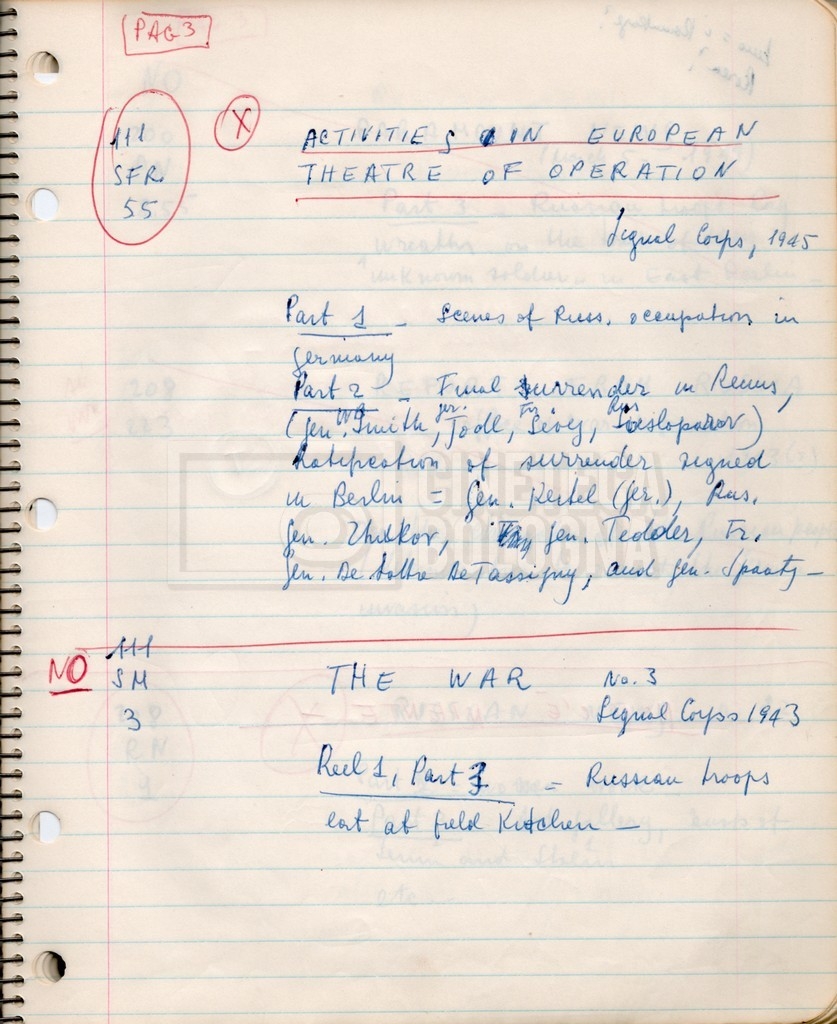 PAG 3
111
SFR.
55
X
ACTIVITIES IN EUROPEAN
THEATRE OF OPERATION
Signal Corps, 1945
Part 1 - Scenes of Russ. occupation in
Germany
Part 2 - Final surrender in Reims,
(Gen. Smith, Ger. Jodl, Fr. Sevez, Rus. Sousloparov)
Ratification of surrender signed
in Berlin = Gen. Keitel (Ger.), Rus.
Gen. Zhukov, Gen. Tedder, Fr.
Gen. De Lattre De Tassigny, and Gen. Spaatz -
CINETECA
BOLOGNA
NO
111
SM
3
THE WAR No. 3
Signal Corps 1943
Reel 1, Part 3 = Russian troops
eat at field Kitchen -